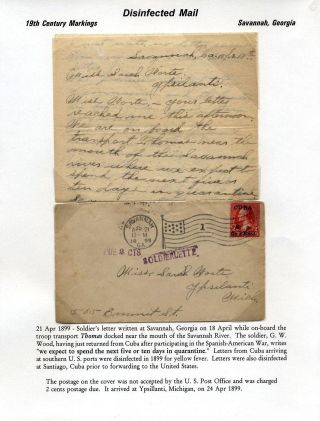 Disinfected Mail
19th Century Markings Savannah, Georgia
Savannah, Ga.
Miss Sarah Worte
Ypsilanti.
Miss Worte, – your letter
reached me this afternoon.
We are on board the
transport Thomas docked near the
mouth of the Savannah
river where we expect to
spend the next five or
ten days in quarantine
SAVANNAH
APR 21
12-M
1899
GA.
1
CUBA
DUE 2 CTS
SOLDIERLETTE
Miss Sarah Worte
Ypsilanti
Mich
515 Emmet St.
21 Apr 1899 - Soldier's letter written at Savannah, Georgia on 18 April while on-board the
troop transport Thomas docked near the mouth of the Savannah River. The soldier, G. W.
Wood, having just returned from Cuba after participating in the Spanish-American War, writes
"we expect to spend the next five or ten days in quarantine. Letters from Cuba arriving
at southern U.S. ports were disinfected in 1899 for yellow fever. Letters were also disinfected
at Santiago, Cuba prior to forwarding to the United States.
The postage on the cover was not accepted by the U.S. Post Office and was charged
2 cents postage due. It arrived at Ypsillanti, Michigan, on 24 Apr 1899.